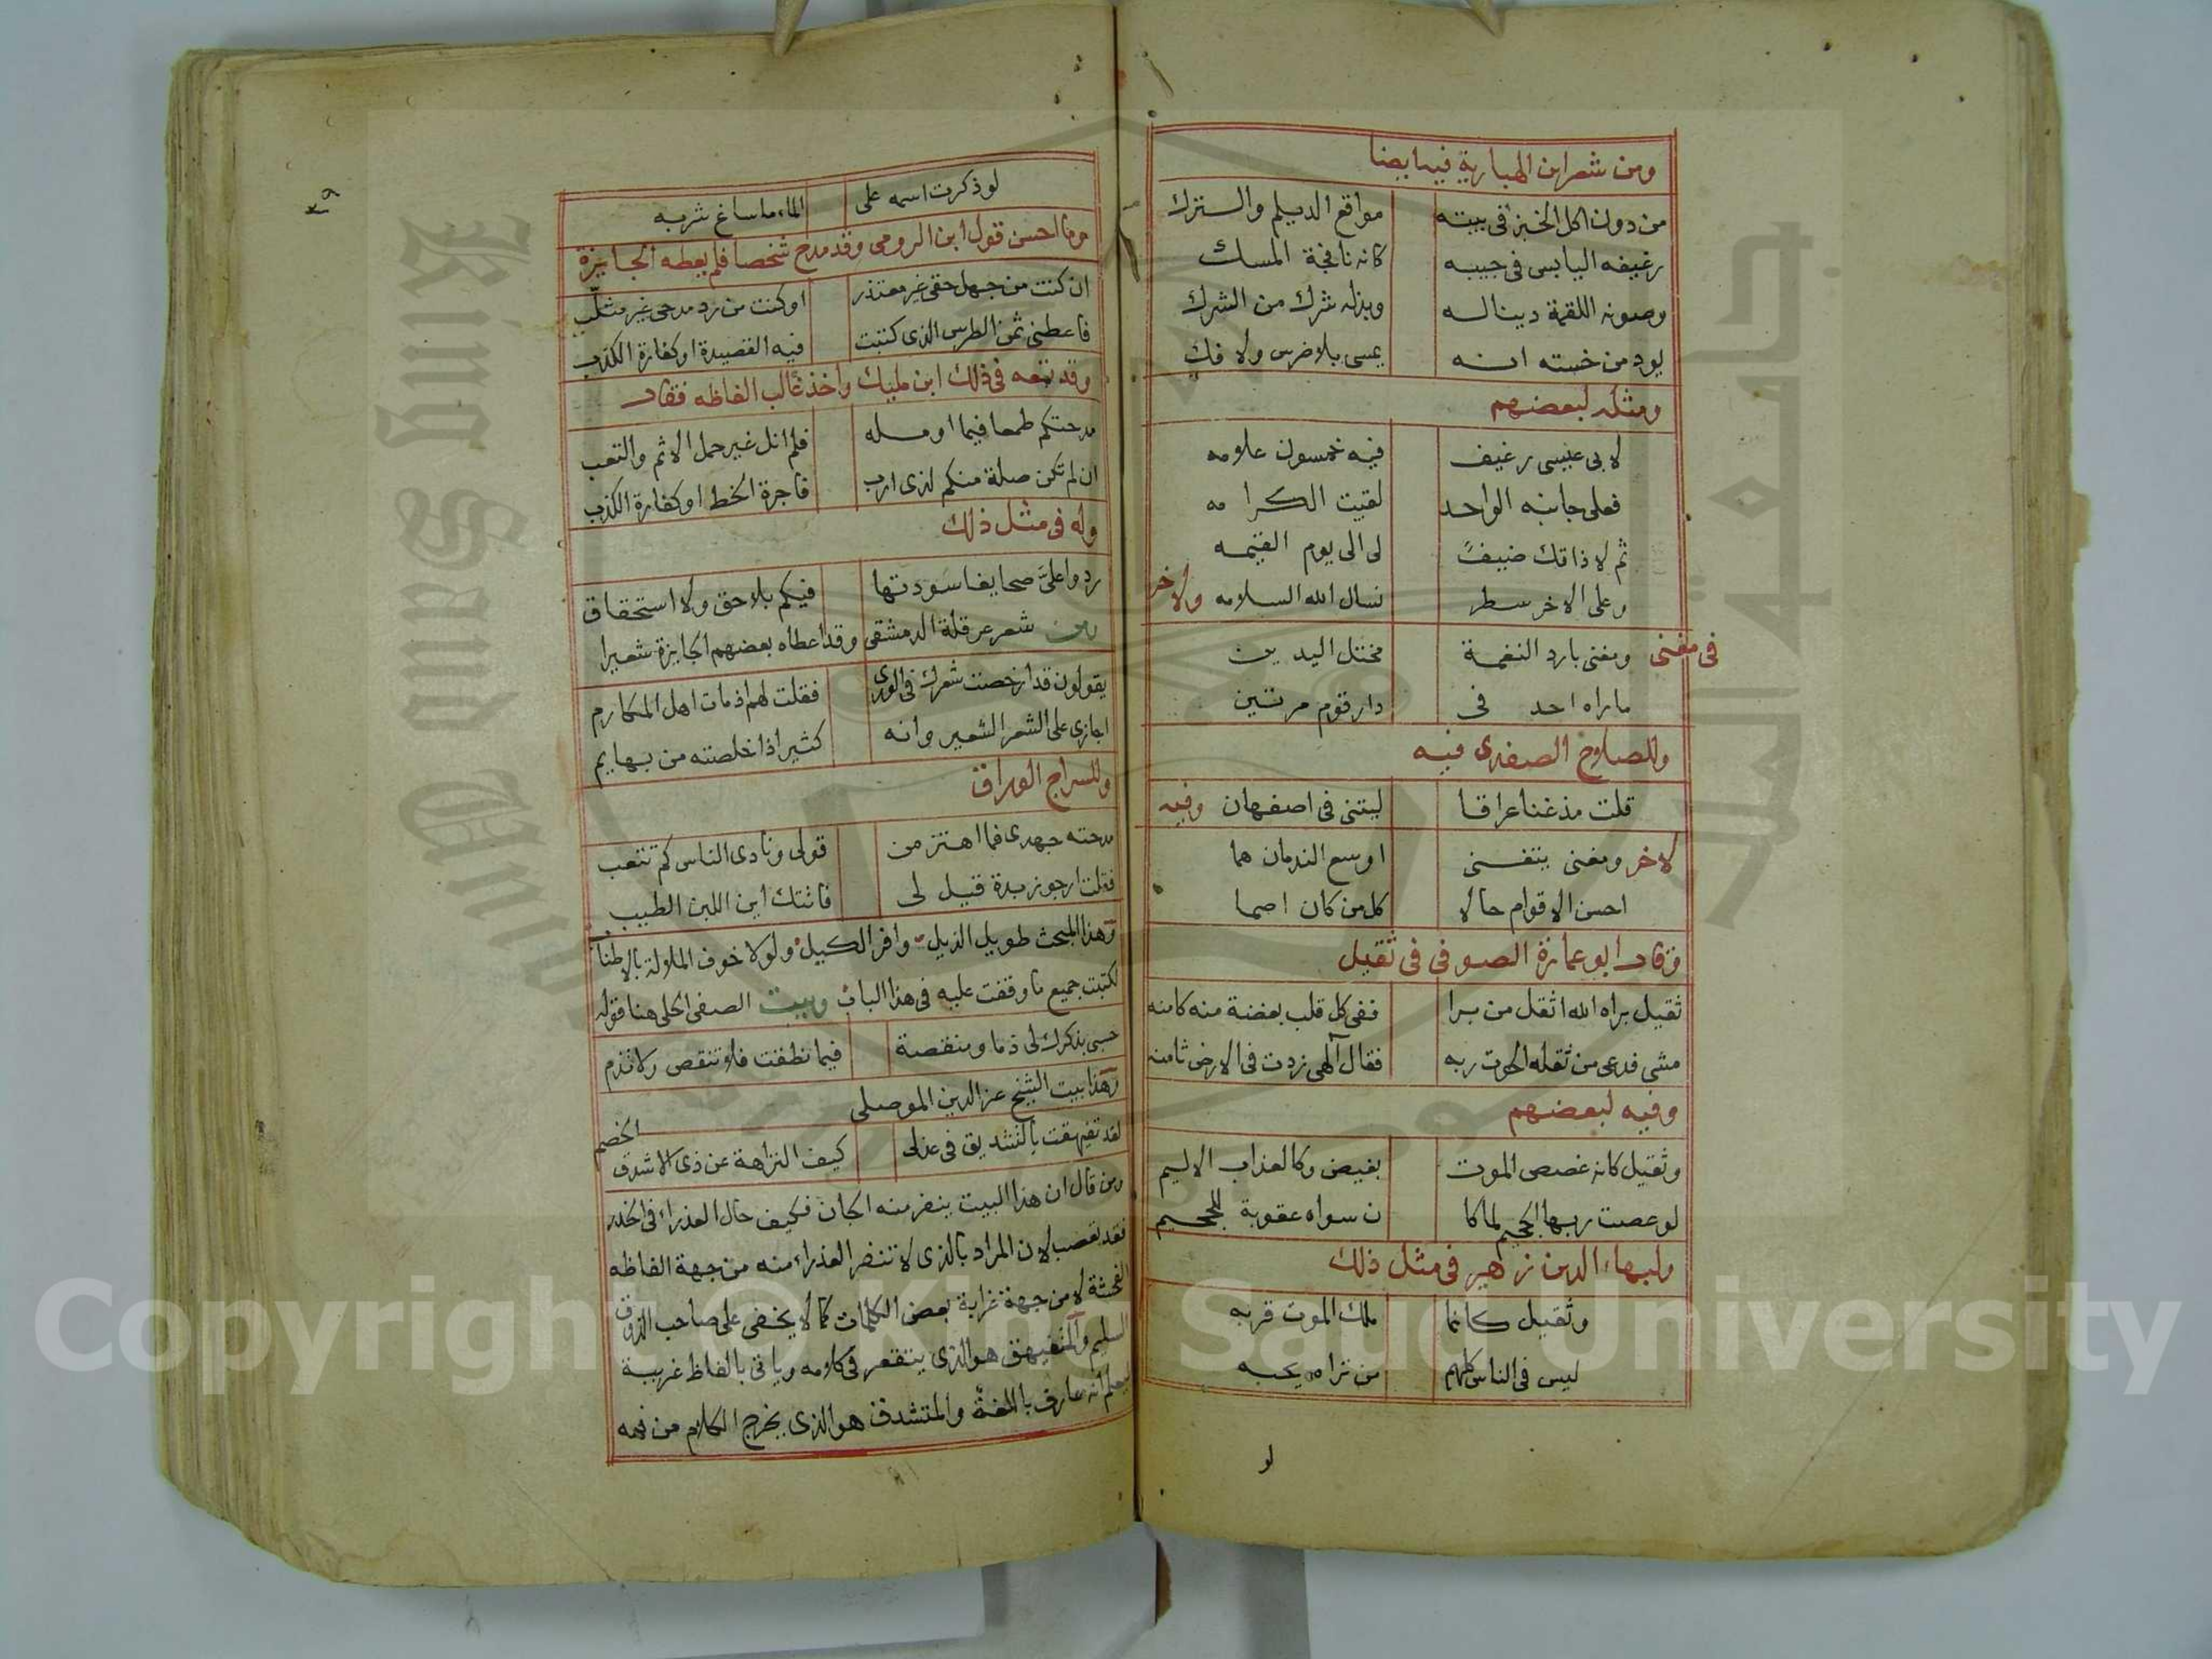 ومن شعر ابن الهبارية فيه ايضا
من دون اكل الخبز فى بيته مواقع الديلم والترك
رغيفه اليابس فى جيبه كانه نافجة المسك
وصونه اللقمة دينا له وبذله شرك من الشرك
يود من خسته انه يمسى بلا ضرس ولا فك
ومثله لبعضهم
لابى عيسى رغيف فيه خمسون علامه
فعلى جانبه الواحد لقيت الكرامه
ثم لا ذاقك ضيف لى الى يوم القيمه
وعلى الاخر سطر نسال الله السلامه ولاخر
فى مغنى ومغنى بارد النغمة مختل اليدين
ماراه احد فى دار قوم مرتين
وللصلاح الصفدى فيه
قلت مذ غنا عراقا ليتنى فى اصفهان وفيه
لاخر ومغنى يتغنى اوسع الندمان هما
احسن الاقوام حالا كل من كان اصما
وقال ابو عمارة الصوفى فى ثقيل
ثقيل براه الله اثقل من برا ففى كل قلب بغضة منه كامنه
مشى فدعى من ثقله الحوت ربه فقال آلهى زدت فى الارض ثامنه
وفيه لبعضهم
وثقيل كانه غصص الموت بغيض وكالعذاب الاليم
لو عصت ربها الجحيم لما كا ن سواه عقوبة للجحيم
ولبهاء الدين زهير فى مثل ذلك
وثقيل كانما ملك الموت قربه
ليس فى الناس كلهم من تراه يحبه
لو
٣٩
لو ذكرت اسمه على الماء ماساغ شربه
وما احسن قول ابن الرومى وقد مدح شخصا فلم يعطه الجايزة
ان كنت من جهل حقى غير معتذر اوكنت من رد مدحى غير مثلب
فاعطنى ثمن الطرس الذى كتبت فيه القصيدة او كفارة الكذب
وقد تبعه فى ذلك ابن مليك واخذ غالب الفاظه فقال
مدحتكم طمعا فيما اومله فلم انل غير حمل الاثم والتعب
ان لم تكن صلة منكم لذى ارب فاجرة الخط او كفارة الكذب
وله فى مثل ذلك
ردوا علىّ صحايفا سودتها فيكم بلا حق ولا استحقاق
ومن شعر عرقلة الدمشقى وقد اعطاه بعضهم الجايزة شعيرا
يقولون قد ارخصت شعرك فى الورى فقلت لهم اذ مات اهل المكارم
اجازى على الشعر الشعير وانه كثير اذا خلصته من بهايم
وللسراج الوراق
مدحته جهدى فما اهتز من قولى ونادى الناس كم تتعب
فقلت ارجو زبدة قيل لى فاتتك اين اللبن الطيب
وهذا المبحث طويل الذيل وافر الكيل ولولا خوف الملالة بالاطنا
لكتبت جميع ما وقفت عليه فى هذا الباب وبيت الصفى الحلى هنا قوله
حسبى بذكرك لى ذما ومنقصة فيما نطقت فلا تنقص ولا تذم
وهذا بيت الشيخ عز الدين الموصلى
لقد تفيهقت بالتشديق فى عذلى كيف النزاهة عن ذى الاشدق الخصم
ومن قال ان هذا البيت ينفر منه الجان فكيف حال العذراء فى الخدر
فقد تعصب لان المراد بالذى لا تنفر العذراء منه من جهة الفاظه
الفحشة لا من جهة غرابة بعض الكلمات كما لا يخفى على صاحب الذوق
السليم والمتفيهق هو الذى يتقعر فى كلامه وياتى بالفاظ غريبة
ليعلم انه عارف باللغة والمتشدق هو الذى يخرج الكلام من فمه
Copyright © King Saud University
King Saud University